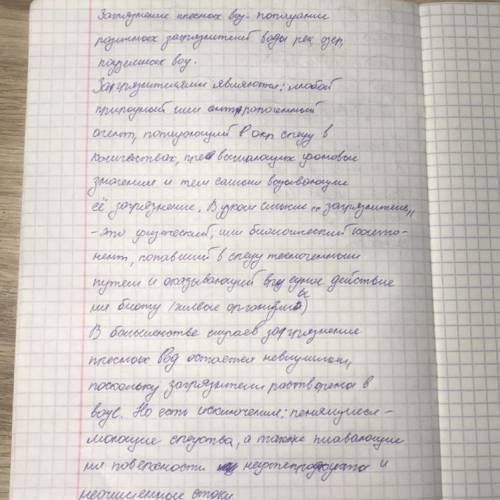 Загрязнение пресных вод - попадание
различных загрязнителей воды рек, озер,
подземных вод.
Загрязнителями являются: любой
природный или антропогенный
агент, попадающий в окр среду в
количествах, превышающих фоновые
значения и тем самым вызывающие
её загрязнение. В узком смысле "загрязнитель"
- это физический, или биологический компо-
нент, попавший в среду техногенным
путем и оказывающий действие
на биоту (живые организмы)
В большинстве случаев загрязнение
пресных вод остается невидимым,
поскольку загрязнители растворены в
воде. Но есть исключения: пенящиеся -
моющие средства, а также плавающие
на поверхности нефтепродукты и
неочищенные стоки.